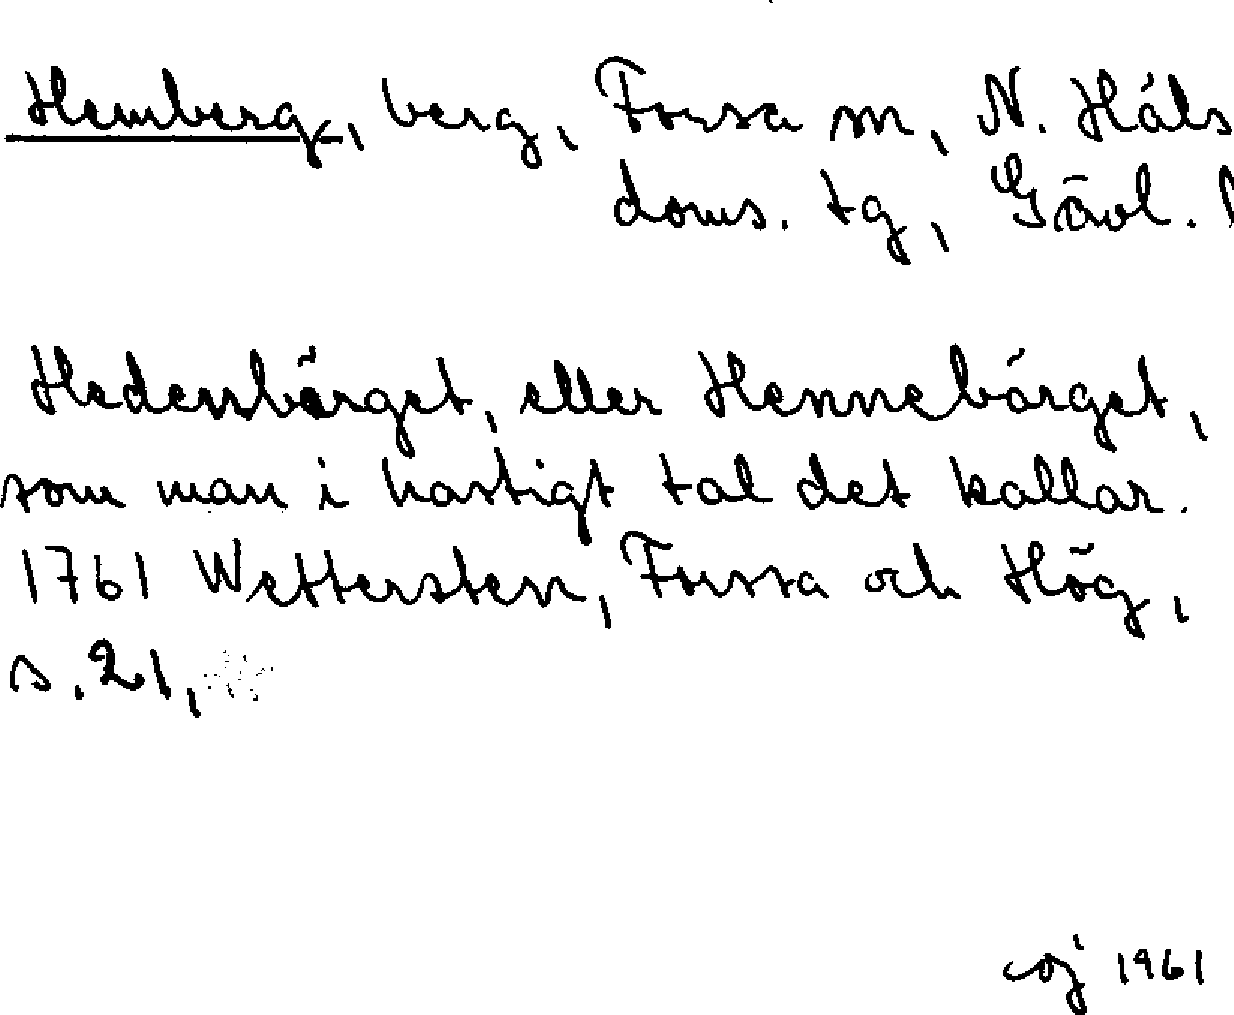 Hemberg, berg, Forsa sn, N. Häls
doms. tg, Gävl. l
Hedensbärget, eller Hennebärget,
som man i hastigt tal det kallar.
1761 Wettersten, Forssa och Hög,
s. 21,
coj 1961